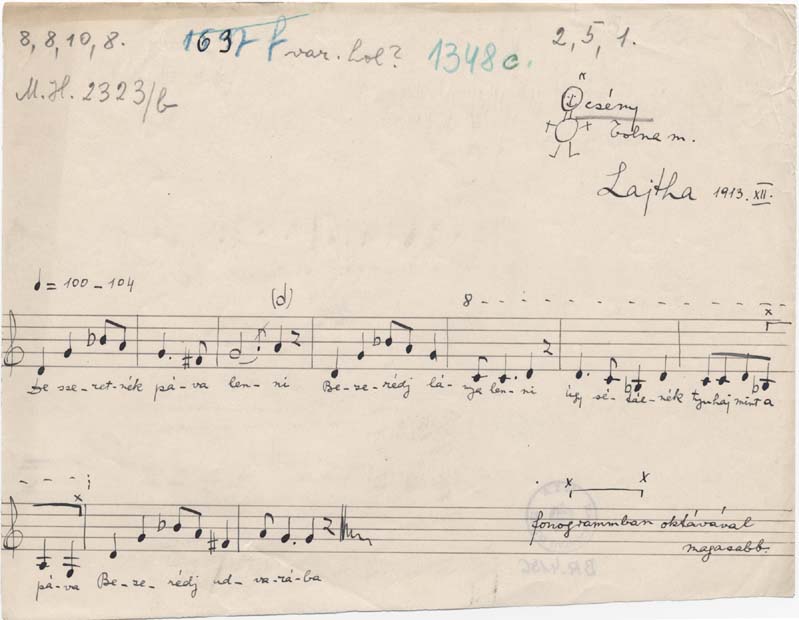 8, 8, 10, 8.
1697 f var. hol?
1348c.
2, 5, 1.
M.H. 2323/b
Öcsény
Tolna m.
Lajtha 1913. XII.
♩ = 100 – 104
(d)
8
x
De sze-ret-nék pá-va len-ni Be-ze-rédj lá-nya len-ni úgy sé-tál-nék tyuhaj mint a
x
pá-va Be-ze-rédj ud-va-rá-ba
x x
fonogrammban oktávával
magasabb.